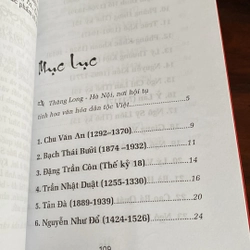 Mục Lục
Thăng Long - Hà Nội, nơi hội tụ
tinh hoa văn hóa dân tộc Việt 5
1. Chu Văn An (1292-1370) 7
2. Bạch Thái Bưởi (1874 -1932) 11
3. Đặng Trần Côn (Thế kỷ 18) 14
4. Trần Nhật Duật (1255-1330) 16
5. Tản Đà (1889-1939) 21
6. Nguyễn Như Đổ (1424-1526) 24